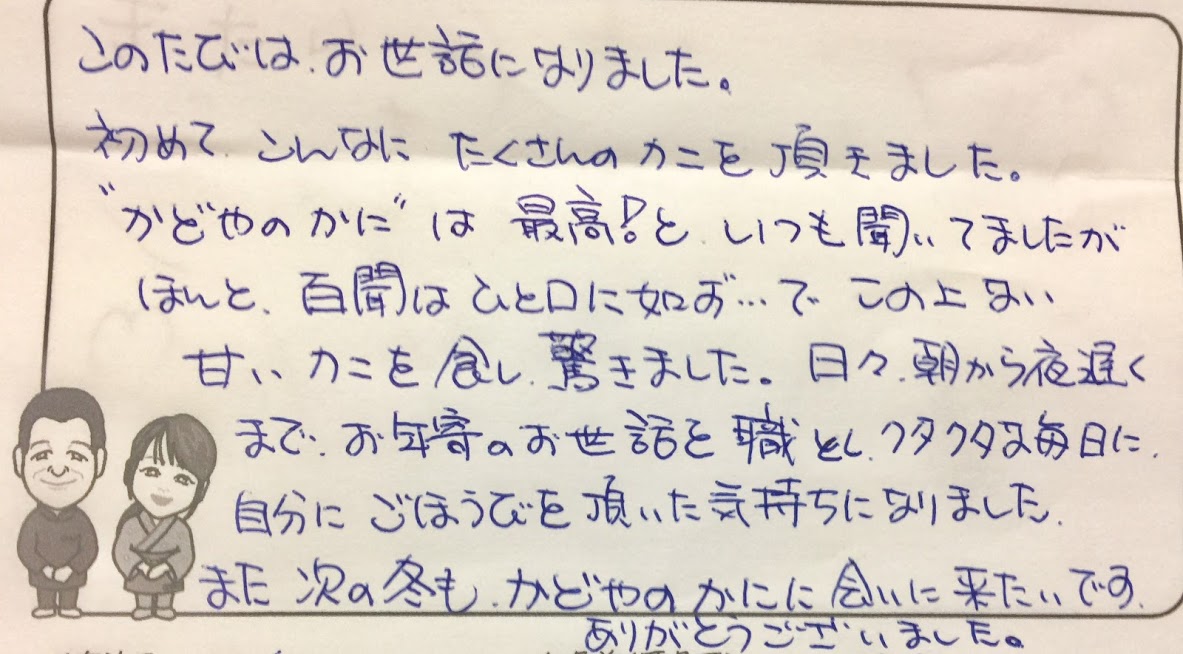 このたびは、お世話になりました。
初めて、こんなに たくさんのカニを頂きました。
“かどやのかに”は 最高!と、いつも聞いてましたが
ほんと、百聞はひと口に如かず…で この上ない
甘いカニを食し、驚きました。日々、朝から夜遅く
まで、お年寄のお世話を職とし、クタクタな毎日に、
自分に ごほうびを頂いた気持ちになりました。
また次の冬も、かどやのかにに会いに来たいです。
ありがとうございました。